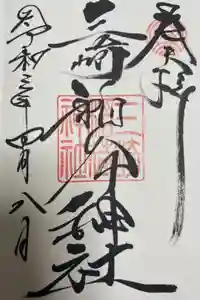 奉拝
三崎稲荷神社
令和三年四月八日